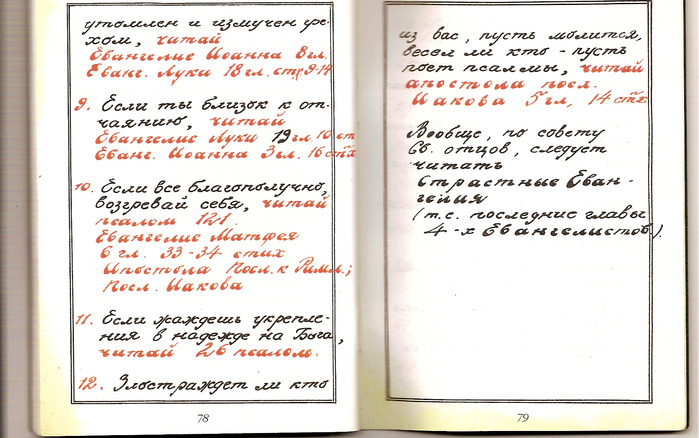 утомлен и измучен гре-
хом, читай
Евангелие Иоанна 8 гл.
Еванг. Луки 18 гл. стр. 9-14
9. Если ты близок к от-
чаянию, читай
Евангелие Луки 19 гл. 10 ст
Еванг. Иоанна 3 гл. 16 стх
10. Если все благополучно,
возгревай себя, читай
псалом 121.
Евангелие Матфея
6 гл. 33-34 стих
Апостола Посл. к Римл.;
Посл. Иакова
11. Если жаждешь укрепле-
ния в надежде на Бога,
читай 26 псалом.
12. Злостраждет ли кто
78
из вас, пусть молится,
весел ли кто - пусть
поет псалмы, читай
апостола посл.
Иакова 5 гл, 14 стх
Вообще, по совету
Св. отцов, следует
читать
Страстные Еван-
гелия
(т.е. последние главы
4-х Евангелистов.)
79